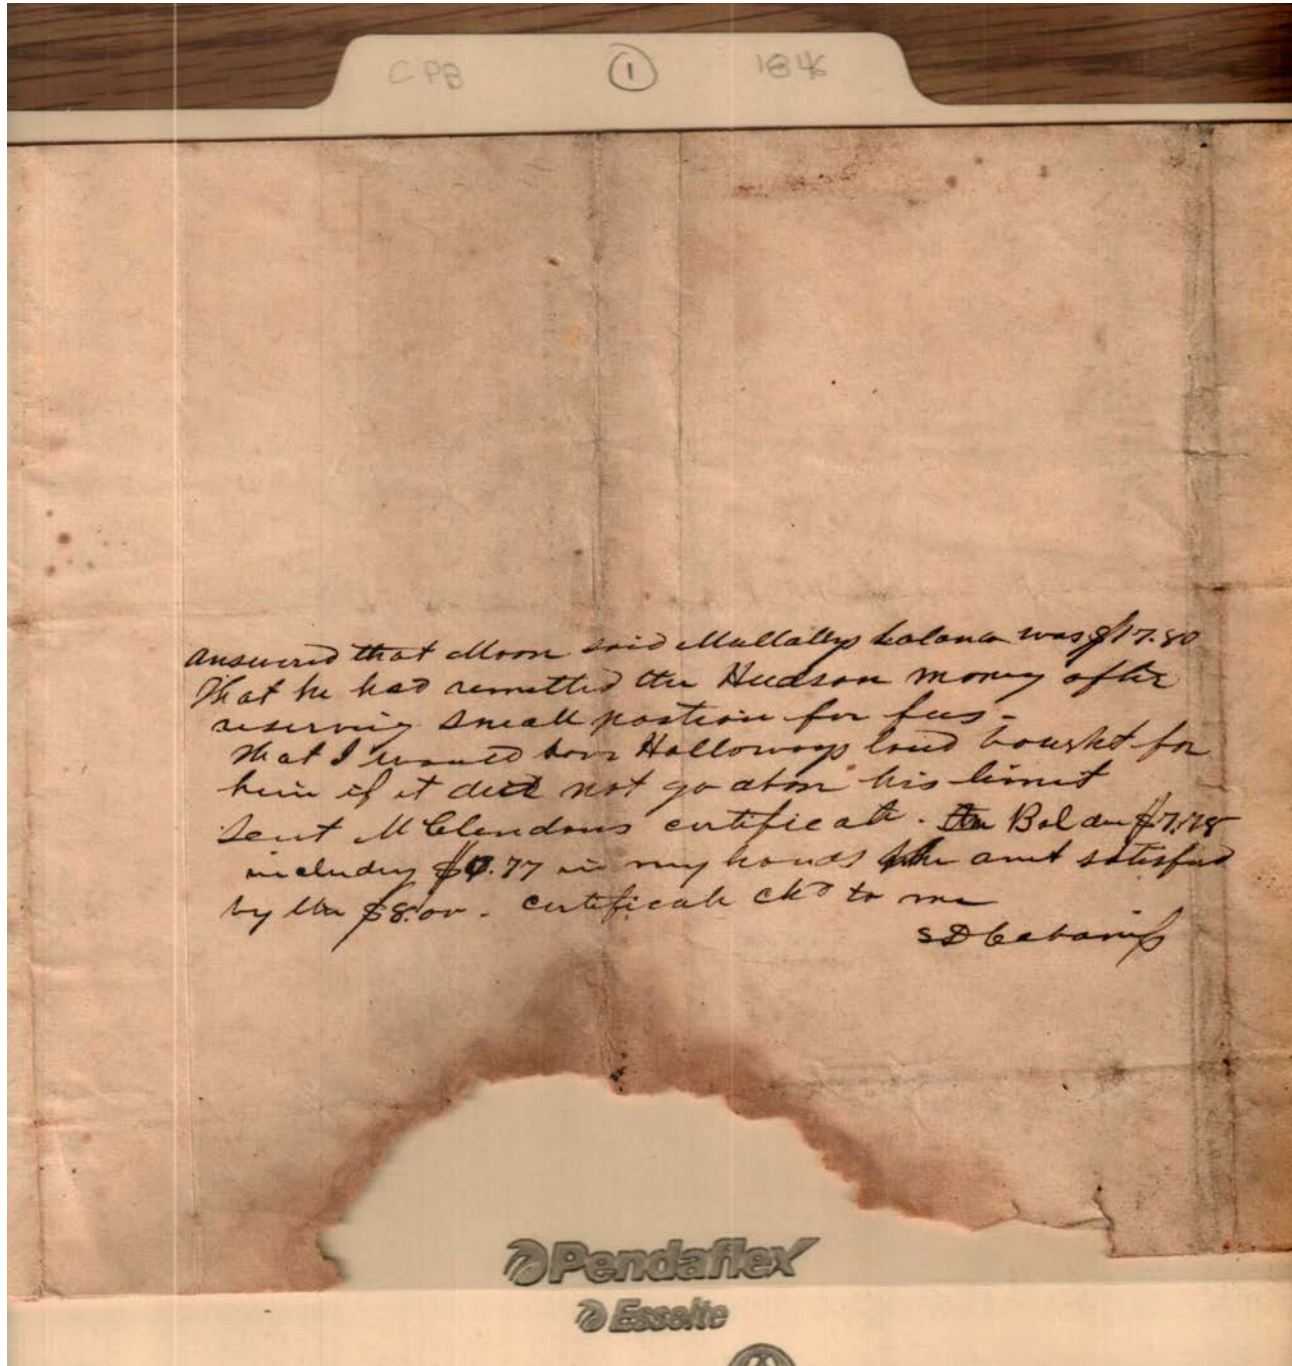 CPB 1 1846
Answered that Moon said Mullallys balance was $17.80
That he had remitted the Hudson money after
reserving small portion for fees -
That I would have Holloways land bought for
him if it did not go above his limit
Sent McClendons certificate. the Bal due $7.78
including $0.77 in my hands the amt satisfied
by the $8.00. certificate chd to me
S D Cabaniss
Pendaflex
Esselte